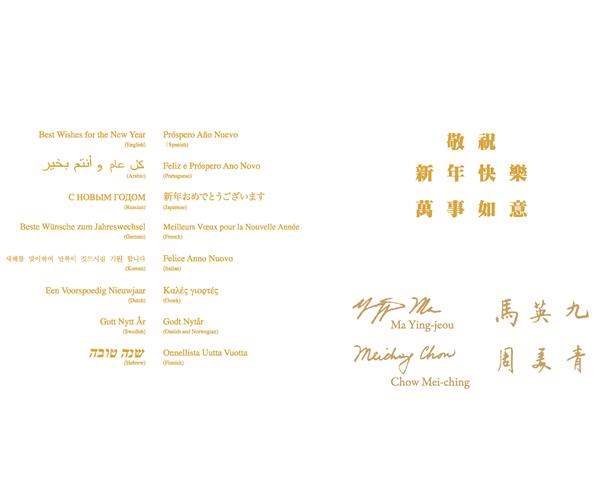 Best Wishes for the New Year
(English)
كل عام و أنتم بخير
(Arabic)
С НОВЫМ ГОДОМ
(Russian)
Beste Wünsche zum Jahreswechsel
(German)
새해를 맞이하여 만복이 깃드시길 기원 합니다
(Korean)
Een Voorspoedig Nieuwjaar
(Dutch)
Gott Nytt År
(Swedish)
שנה טובה
(Hebrew)
Próspero Año Nuevo
(Spanish)
Feliz e Próspero Ano Novo
(Portuguese)
新年おめでとうございます
(Japanese)
Meilleurs Vœux pour la Nouvelle Année
(French)
Felice Anno Nuovo
(Italian)
Καλές γιορτές
(Greek)
Godt Nytår
(Danish and Norwegian)
Onnellista Uutta Vuotta
(Finnish)
敬祝
新年快樂
萬事如意
Ma Ying-jeou
馬英九
Meiching Chow
Chow Mei-ching
周美青